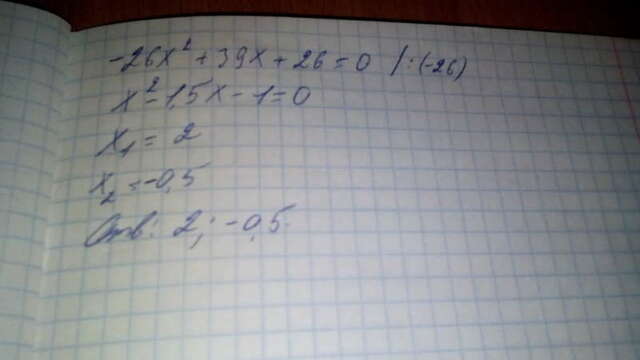 -26x² + 39x + 26 = 0 /:(-26)
x² - 1,5x - 1 = 0
x₁ = 2
x₂ = -0,5
Отв: 2; -0,5.